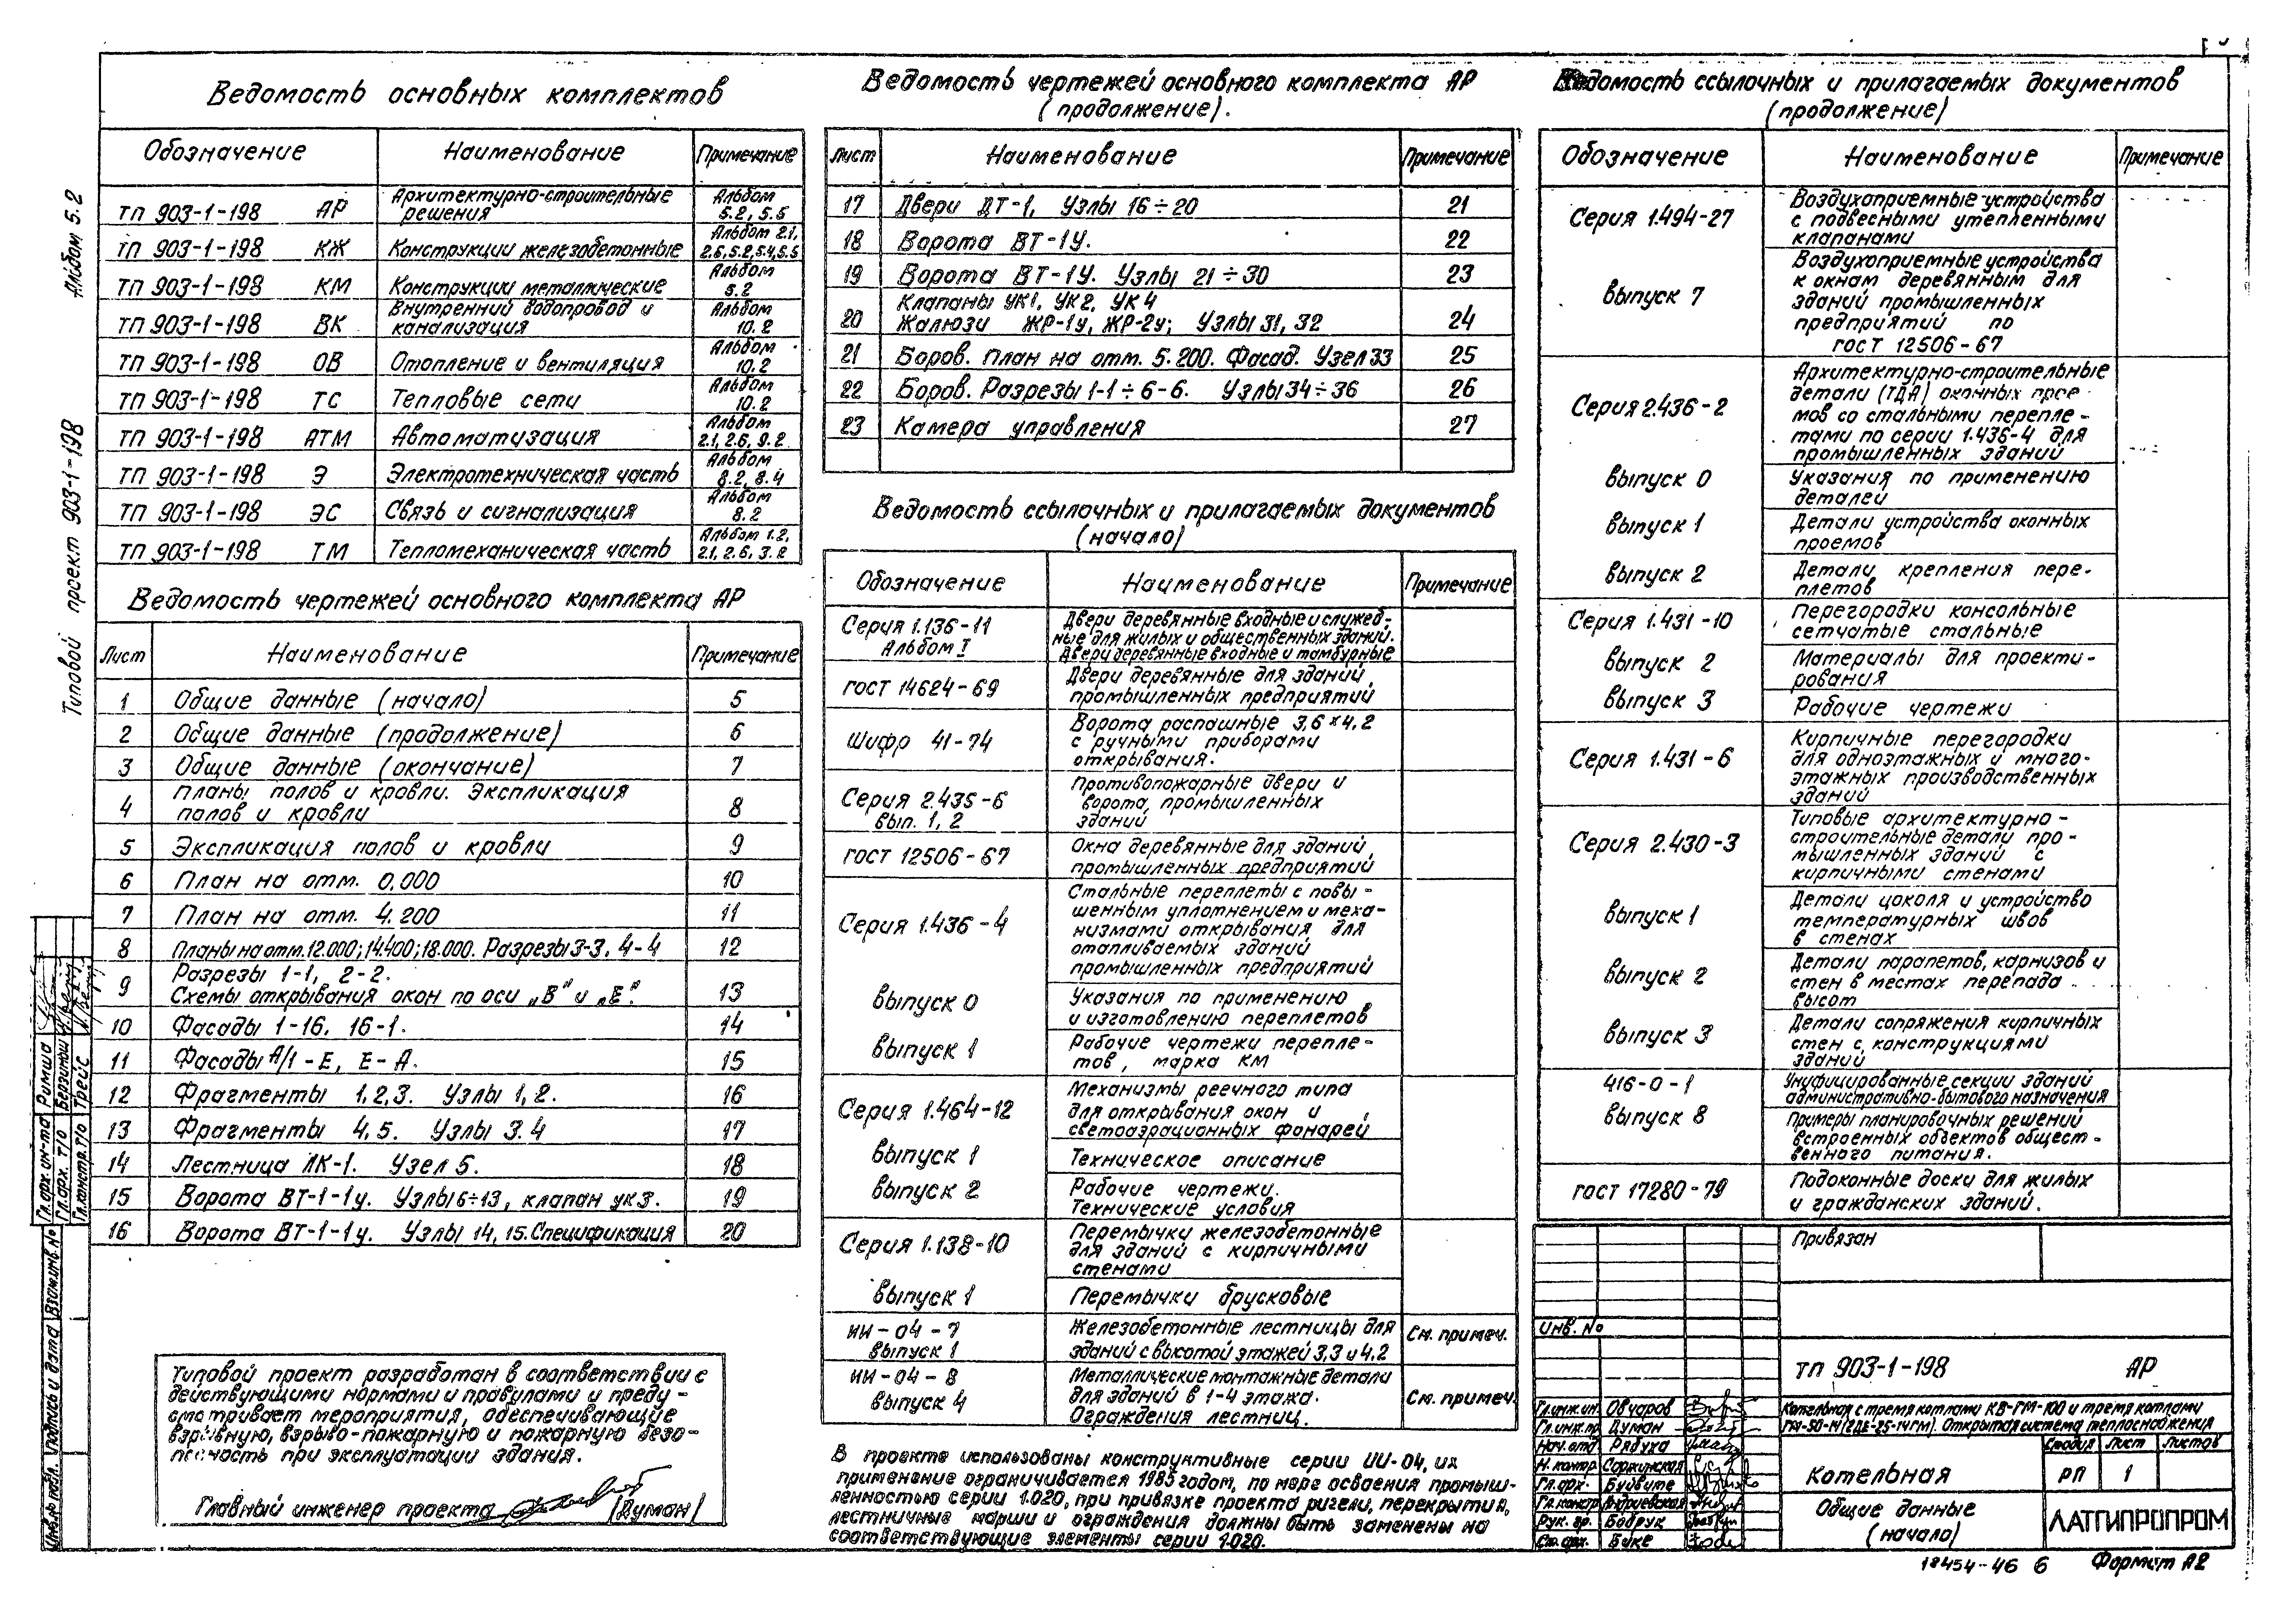 Альбом 5.2
Типовой проект 903-1-198
Ведомость основных комплектов
Обозначение Наименование Примечание
ТП 903-1-198 АР Архитектурно-строительные решения Альбом 5.2, 5.5
ТП 903-1-198 КЖ Конструкции железобетонные Альбом 2.1, 2.6, 5.2, 5.4, 5.5
ТП 903-1-198 КМ Конструкции металлические Альбом 5.2
ТП 903-1-198 ВК Внутренний водопровод и канализация Альбом 10.2
ТП 903-1-198 ОВ Отопление и вентиляция Альбом 10.2
ТП 903-1-198 ТС Тепловые сети Альбом 10.2
ТП 903-1-198 АТМ Автоматизация Альбом 2.1, 2.6, 9.2
ТП 903-1-198 Э Электротехническая часть Альбом 8.2, 8.4
ТП 903-1-198 ЭС Связь и сигнализация Альбом 8.2
ТП 903-1-198 ТМ Тепломеханическая часть Альбом 1.2, 2.1, 2.6, 3.2
Ведомость чертежей основного комплекта АР
Лист Наименование Примечание
1 Общие данные (начало) 5
2 Общие данные (продолжение) 6
3 Общие данные (окончание) 7
4 Планы полов и кровли. Экспликация полов и кровли 8
5 Экспликация полов и кровли 9
6 План на отм. 0,000 10
7 План на отм. 4.200 11
8 Планы на отм. 12.000; 14.400; 18.000. Разрезы 3-3, 4-4 12
9 Разрезы 1-1, 2-2.
Схемы открывания окон по оси „В" и „Е". 13
10 Фасады 1-16, 16-1. 14
11 Фасады А/1-Е, Е-А. 15
12 Фрагменты 1,2,3. Узлы 1,2. 16
13 Фрагменты 4,5. Узлы 3.4 17
14 Лестница ЛК-1. Узел 5. 18
15 Ворота ВТ-1-1у. Узлы 6÷13, клапан ук3. 19
16 Ворота ВТ-1-1у. Узлы 14, 15. Спецификация 20
Типовой проект разработан в соответствии с
действующими нормами и правилами и преду-
сматривает мероприятия, обеспечивающие
взрывную, взрыво-пожарную и пожарную безо-
пасность при эксплуатации здания.
Главный инженер проекта (Думан)
Ведомость чертежей основного комплекта АР
(продолжение).
Лист Наименование Примечание
17 Двери ДТ-1, Узлы 16÷20 21
18 Ворота ВТ-1У. 22
19 Ворота ВТ-1У. Узлы 21÷30 23
20 Клапаны УК1, УК2, УК4
Жалюзи ЖР-1у, ЖР-2у; Узлы 31, 32 24
21 Боров. План на отм. 5.200. Фасад. Узел 33 25
22 Боров. Разрезы 1-1÷6-6. Узлы 34÷36 26
23 Камера управления 27
Ведомость ссылочных и прилагаемых документов
(начало)
Обозначение Наименование Примечание
Серия 1.136-11
Альбом I
Двери деревянные входные и служеб-
ные для жилых и общественных зданий.
Двери деревянные входные и тамбурные
ГОСТ 14624-69
Двери деревянные для зданий
промышленных предприятий
Шифр 41-74
Ворота распашные 3,6×4,2
с ручными приборами
открывания.
Серия 2.435-6
вып. 1, 2
Противопожарные двери и
ворота, промышленных
зданий
ГОСТ 12506-67
Окна деревянные для зданий
промышленных предприятий
Серия 1.436-4
Стальные переплеты с повы-
шенным уплотнением и меха-
низмами открывания для
отапливаемых зданий
промышленных предприятий
выпуск 0
Указания по применению
и изготовлению переплетов
выпуск 1
Рабочие чертежи перепле-
тов, марка КМ
Серия 1.464-12
Механизмы реечного типа
для открывания окон и
светоаэрационных фонарей
выпуск 1 Техническое описание
выпуск 2 Рабочие чертежи.
Технические условия
Серия 1.138-10
Перемычки железобетонные
для зданий с кирпичными
стенами
выпуск 1 Перемычки брусковые
ИИ-04-7
выпуск 1
Железобетонные лестницы для
зданий с высотой этажей 3,3 и 4,2
См. примеч.
ИИ-04-8
выпуск 4
Металлические монтажные детали
для зданий в 1-4 этажа.
Ограждения лестниц.
См. примеч.
В проекте использованы конструктивные серии ИИ-04, их
применение ограничивается 1985 годом, по мере освоения промыш-
ленностью серии 1.020, при привязке проекта ригели, перекрытия,
лестничные марши и ограждения должны быть заменены на
соответствующие элементы серии 1.020.
Ведомость ссылочных и прилагаемых документов
(продолжение)
Обозначение Наименование Примечание
Серия 1.494-27
Воздухоприемные устройства
с подвесными утепленными
клапанами
выпуск 7
Воздухоприемные устройства
к окнам деревянным для
зданий промышленных
предприятий по
ГОСТ 12506-67
Серия 2.436-2
Архитектурно-строительные
детали (ТДА) оконных прое-
мов со стальными перепле-
тами по серии 1.436-4 для
промышленных зданий
выпуск 0
Указания по применению
деталей
выпуск 1
Детали устройства оконных
проемов
выпуск 2
Детали крепления пере-
плетов
Серия 1.431-10
Перегородки консольные
сетчатые стальные
выпуск 2
Материалы для проекти-
рования
выпуск 3 Рабочие чертежи
Серия 1.431-6
Кирпичные перегородки
для одноэтажных и много-
этажных производственных
зданий
Серия 2.430-3
Типовые архитектурно-
строительные детали про-
мышленных зданий с
кирпичными стенами
выпуск 1
Детали цоколя и устройство
температурных швов
в стенах
выпуск 2
Детали парапетов, карнизов и
стен в местах перепада
высот
выпуск 3
Детали сопряжения кирпичных
стен с конструкциями
зданий
416-0-1
Унифицированные секции зданий
административно-бытового назначения
выпуск 8
Примеры планировочных решений
встроенных объектов общест-
венного питания.
ГОСТ 17280-79
Подоконные доски для жилых
и гражданских зданий.
Привязан
Инв. №
ТП 903-1-198 АР
Котельная с тремя котлами КВ-ГМ-100 и тремя котлами
Открытая система теплоснабжения
Гл.инж.ин. Овчаров
Гл.инж.пр. Думан
Нач.отд. Рябуха
Н. контр.
Гл.арх.
Гл.констр. Андриевская
Рук. гр. Бобрук
Ст. арх. Буке
Котельная
Стадия Лист Листов
РП 1
Общие данные
(начало)
ЛАТГИПРОПРОМ
18454-46 6 Формат А2
Гл. арх. ин-та Римша
Гл. арх. Т/О Берзиньш
Гл. констр. Т/О Трейс
Инв. № подл. Подпись и дата Взам.инв.№